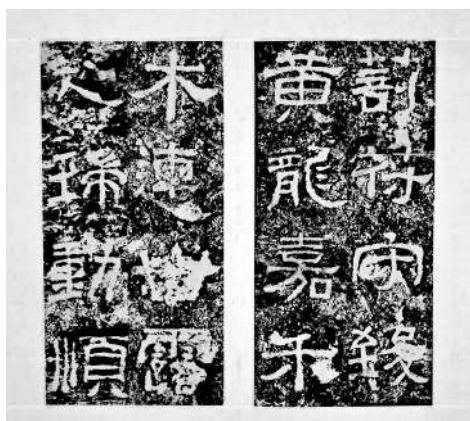 剖符守致
黄龍嘉禾
木連甘露
之瑞動順